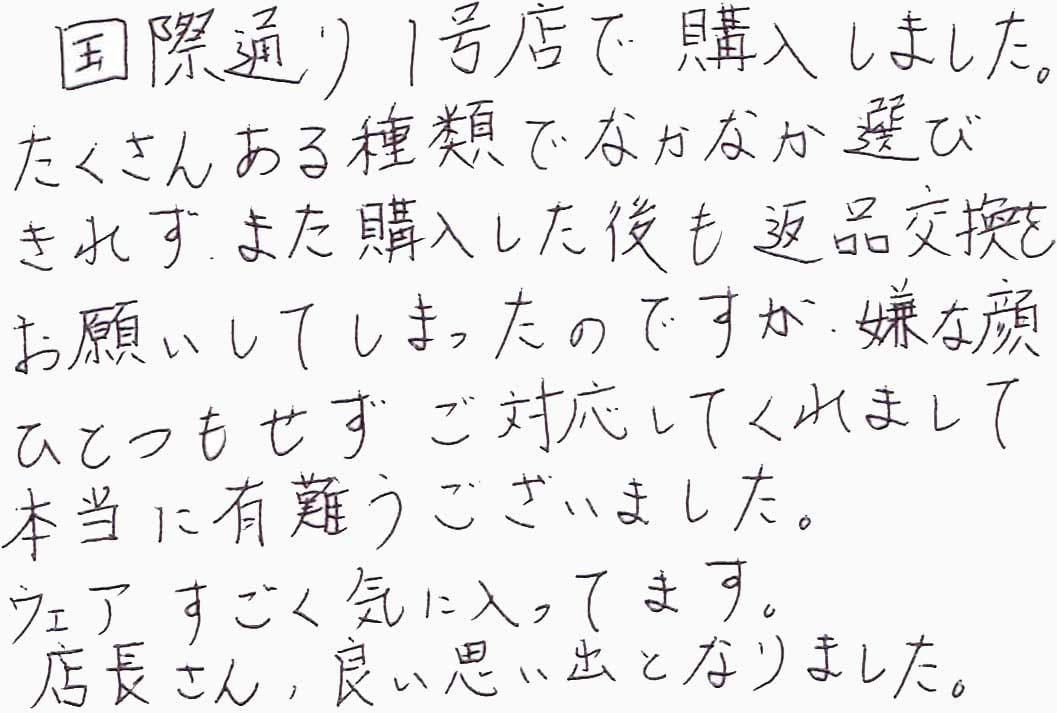 国際通り1号店で購入しました。
たくさんある種類でなかなか選び
きれず、また購入した後も返品交換を
お願いしてしまったのですが、嫌な顔
ひとつもせずご対応してくれまして
本当に有難うございました。
ウェアすごく気に入ってます。
店長さん、良い思い出となりました。